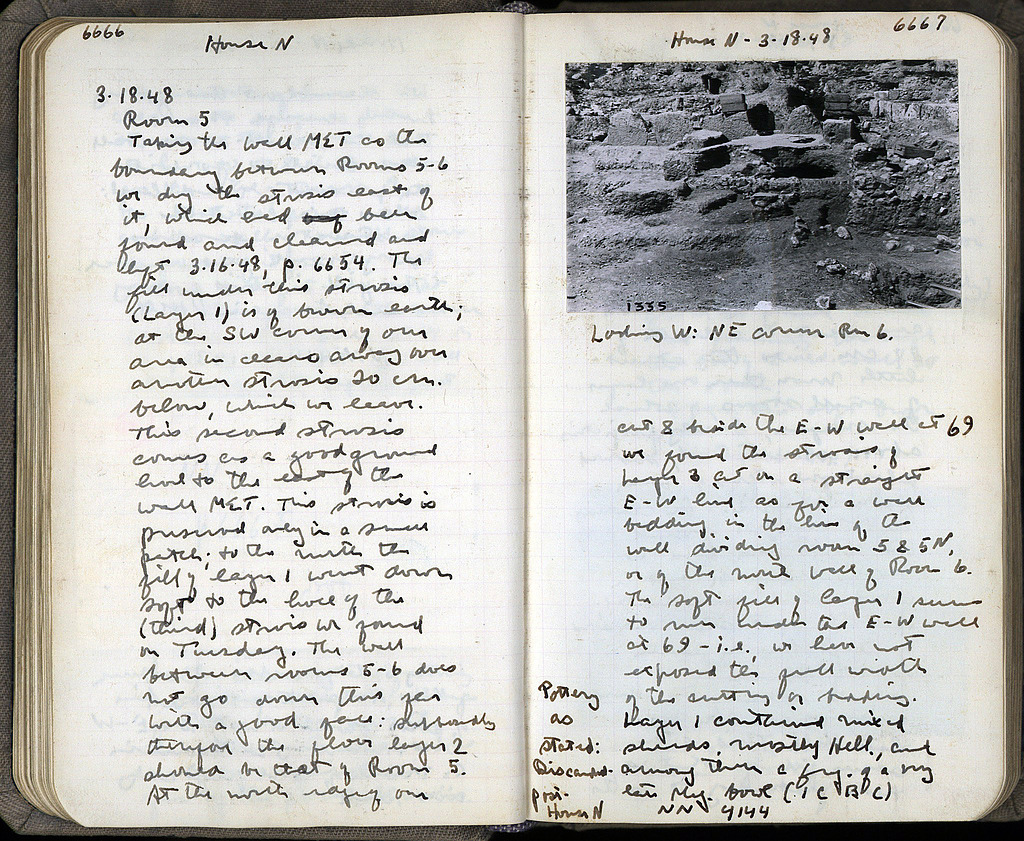 6666
House N
3.18.48
Room 5
Taking the wall MET as the
boundary between Rooms 5-6
we dug the strosis east of
it, which had been
found and cleaned and
left 3.16.48, p. 6654. The
fill under this strosis
(Layer 1) is of brown earth;
at the SW corner of our
area it cleans away over
another strosis 20 cm.
below, which we leave.
This second strosis
comes as a good ground
level to the east of the
wall MET. This strosis is
preserved only in a small
patch; to the north the
fill of layer 1 went down
soft to the level of the
(third) strosis we found
on Tuesday. The wall
between rooms 5-6 does
not go down this far
with a good face: supposedly
therefore the floor layer 2
should be that of Room 5.
At the north edge of our
6667
House N - 3-18.48
1335
Looking W: NE corner Rm 6.
cut & beside the E-W wall at 69
we found the strosis of
layer 3 cut in a straight
E-W line as for a wall
bedding in the line of the
wall dividing room 5 & 5N,
or of the north wall of Room 6.
The soft fill of layer 1 seems
to run under the E-W wall
at 69 - i.e., we have not
exposed the full width
of the cutting or bedding.
Layer 1 contained mixed
sherds, mostly Hell., and
among them a frg. of a very
late Meg. bowl (1 C BC)
NN 4144
Pottery
as
stated:
Discarded.
Post-
House N